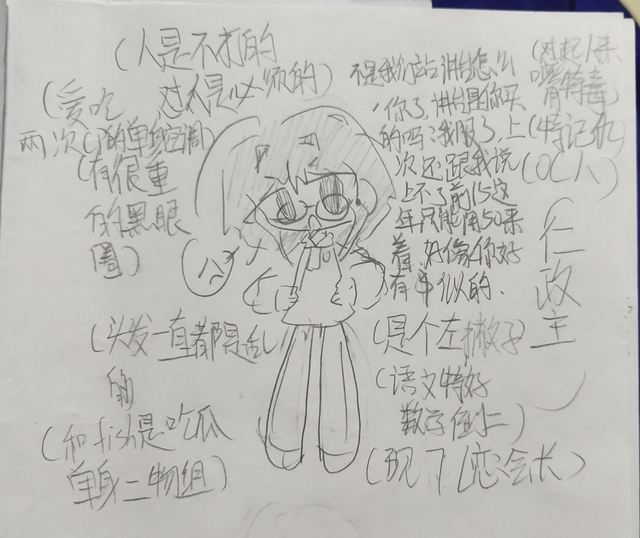 (人是不打的
对人是必须的)
(爱吃
两次
(有很重
的黑眼
圈)
(头发一直都是乱
的
(和fish是吃瓜
单身二人组)
不是我们站讲台怎么
你了,讲台是你买
的吗?我服了,上
次还跟我说
上不了前15这
年只能用50来
着,好像你好
有事似的.
(对起人来
嘴特毒)
(特记仇)
(OC人)
仁政主
(是个左撇子)
(语文特好
数学倒二)
会长)